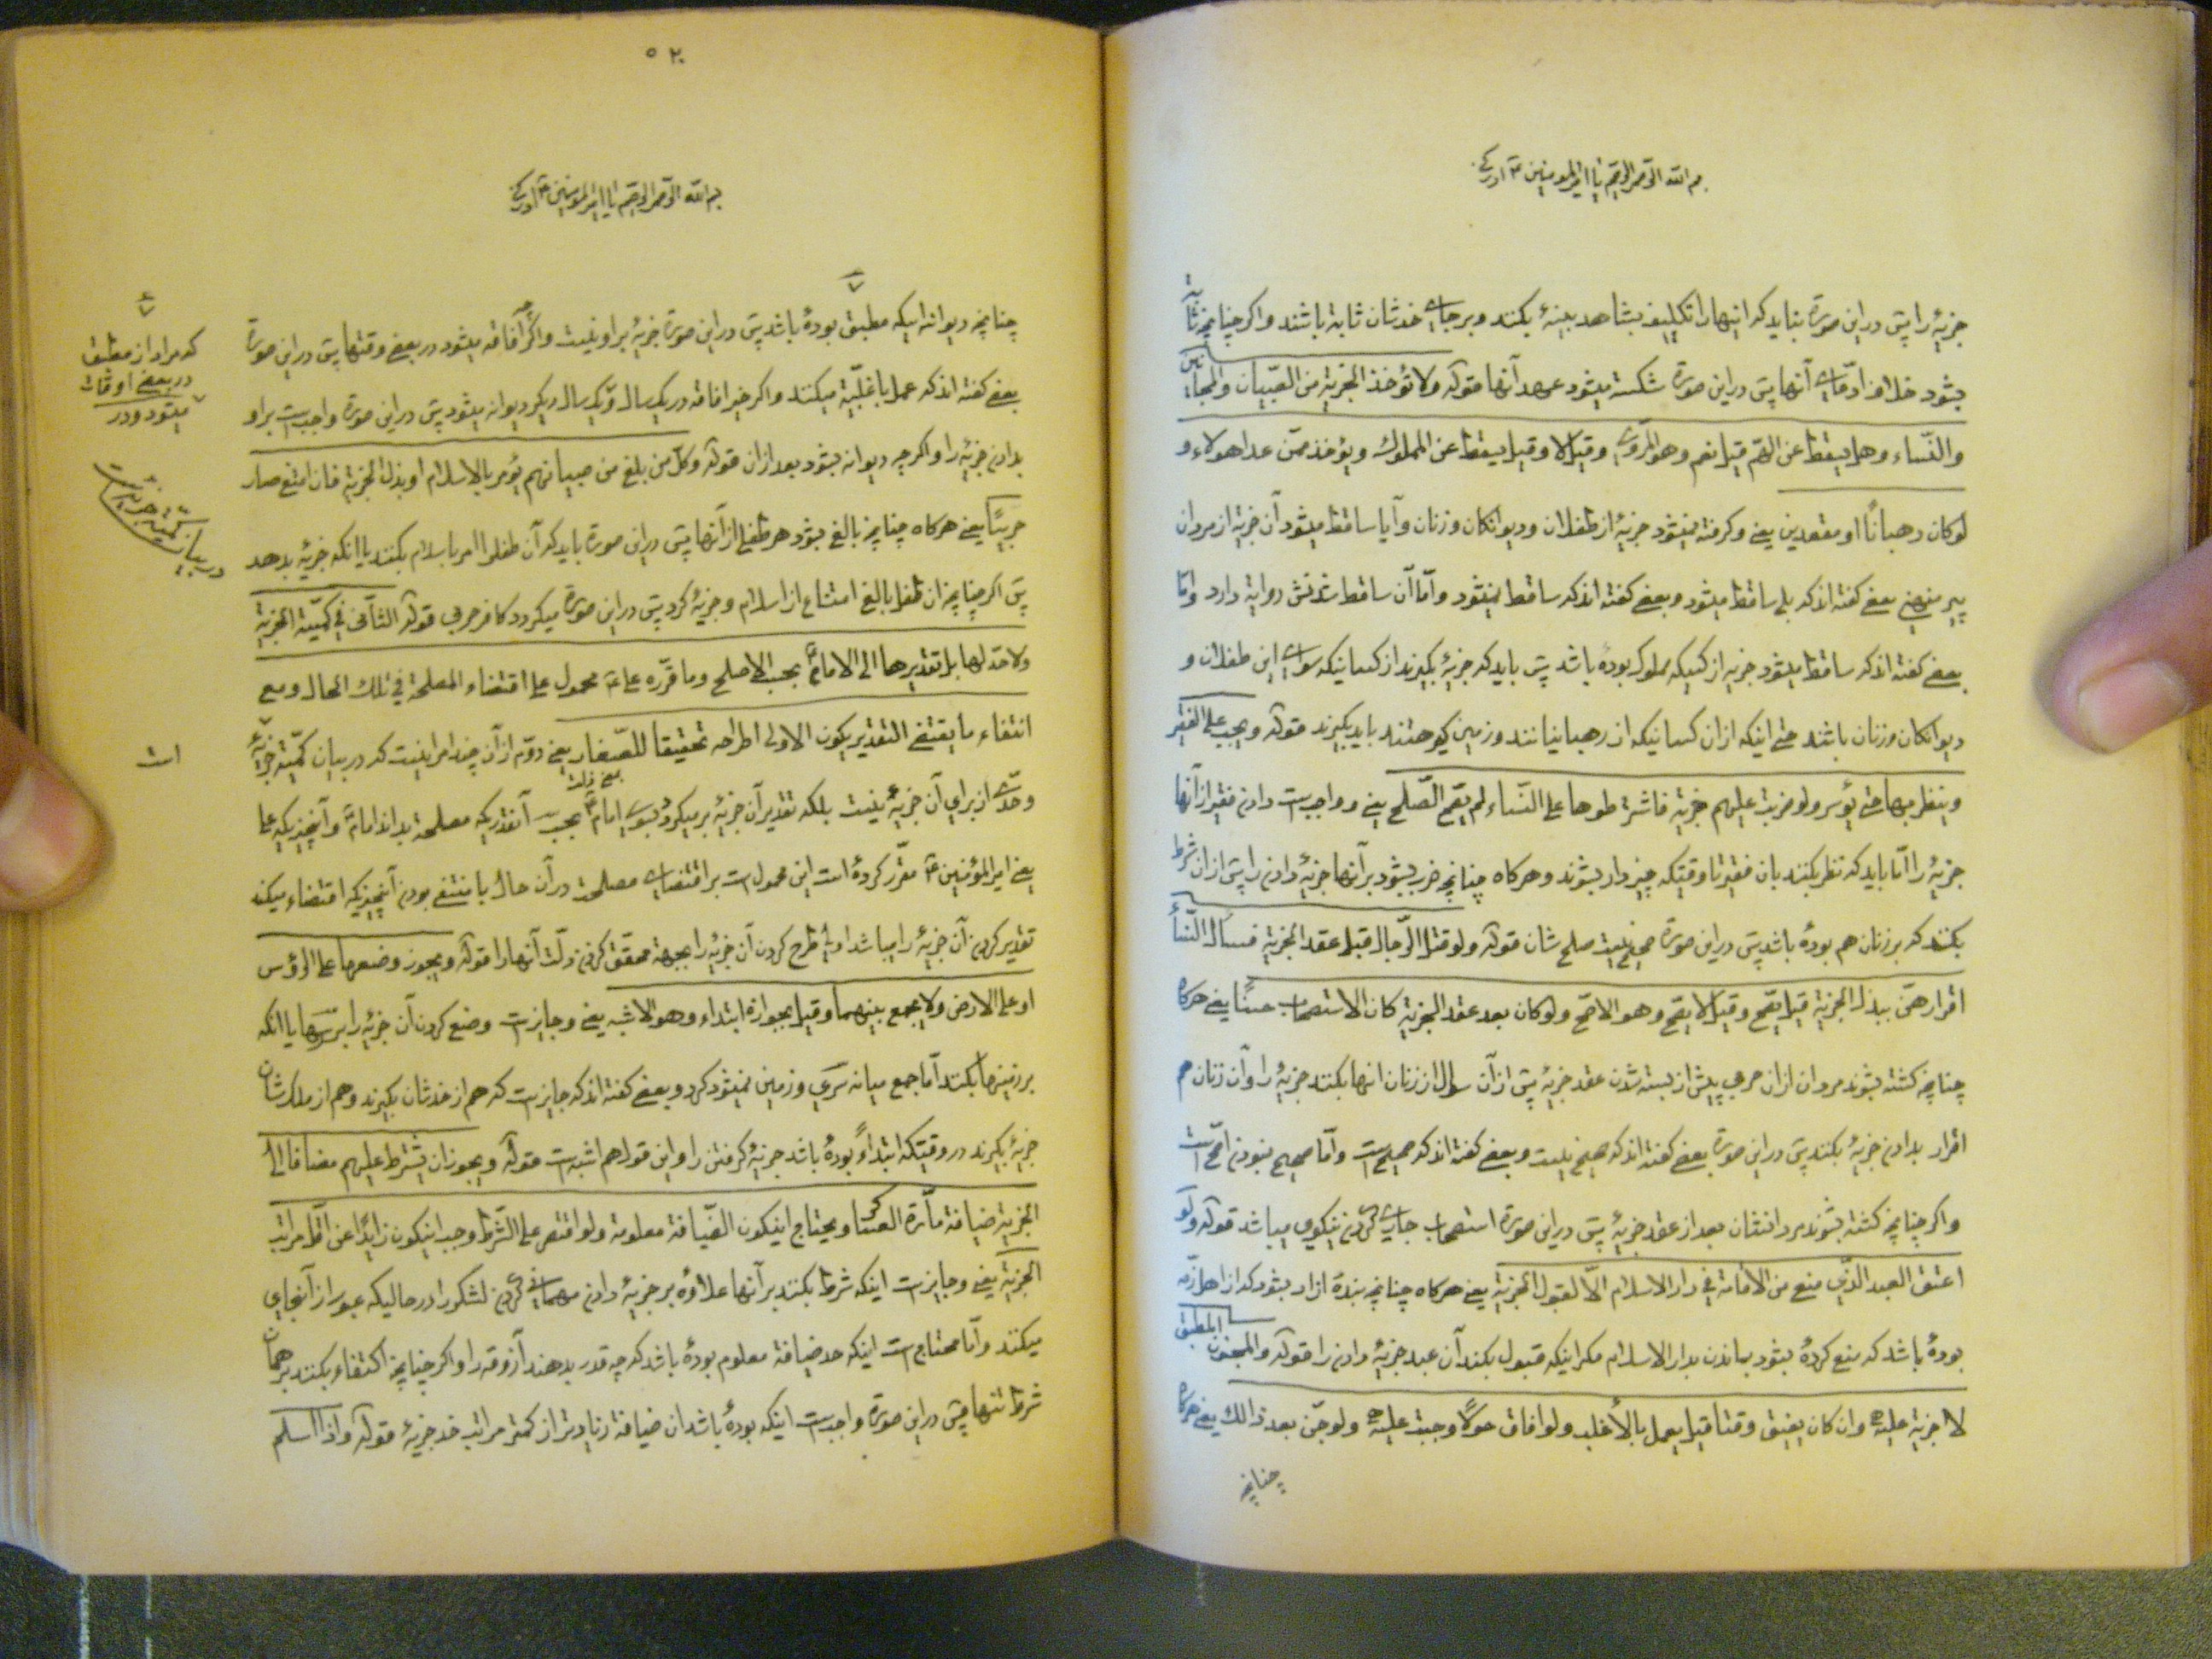 بسم الله الرحمن الرحیم یا امیرالمومنین ع ادرکنی
جزیهٔ را پس در این صورة بناید که اینها را تکلیف بشاهد بینهٔ بکنند و بر جای خدشان ثابة باشند و اکر چنانچه ثابة
بشود خلاف ادّعای آنها پس در این صورة شکسته میشود عهد آنها قوله ولا تؤخذ الجزیة من الصّبیان والمجانین
والنّساء وهل یسقط عن الهّم قیل نعم وهو المرّوی وقیل لا وقیل یسقط عن المملوك ویؤخذ ممّن عدا هولاء و
لو کان رهباناً او مقعدین یعنی و کرفته نمیشود جزیهٔ از طفلان و دیوانکان و زنان و آیا ساقط میشود آن جزیه از مردان
پیر منهنی بعضی کفته اند که بلی ساقط میشود و بعضی کفته اند که ساقط نمیشود و امّا آن ساقط شدنش روایة دارد و امّا
بعضی کفته اند که ساقط میشود جزیه از کسیکه مملوك بودهٔ باشد پس باید که جزیهٔ بکیرند از کسانیکه سوای این طفلان و
دیوانکان و زنان باشد حتی اینکه ازان کسانیکه از رهبانیانند و زمین کیر هستند باید بکیرند قوله ویجب علی الفقیر
وینظر بها حتی یؤسر ولو ضربت علیهم جزیة فاشترطوها علی النّساء لم یصّح الصّلح یعنی و واجبست دادن فقیر از آنها
جزیهٔ را امّا باید که نظر بکنند بان فقیر تا وقتیکه چیزدار بشوند و هرکاه چنانچه ضرب بشود بر آنها جزیهٔ دادن را پس ازان شرط
بکنند که بر زنان هم بودهٔ باشد پس در این صورة صحیح نیست صلح شان قوله ولو قتل الرّجال قبل عقد الجزیة فسأل النّساء
اقرارهنّ ببذل الجزیة قیل یصّح وقیل لا یصّح وهو الاصّح ولو کان بعد عقد الجزیة کان الاستصحاب حسناً یعنی هرکاه
چنانچه کشته بشوند مردان ازان حربی پیش از بسته شدن عقد جزیهٔ پس ازان سوال از زنان انها بکنند جزیهٔ را و آن زنان هم
اقرار بدادن جزیهٔ بکنند پس در این صورة بعضی کفته اند که صحیح نیست و بعضی کفته اند که صحیحست و امّا صحیح نبودن اصّحست
و اکر چنانچه کشته بشوند مردانشان بعد از عقد جزیهٔ پس در این صورة استصحاب جاری کردن نیکوی میباشد قوله ولو
اعتق العبد الذّمی منع من الاقامة فی دار الاسلام الاّ لقبول الجزیة یعنی هرکاه چنانچه بندهٔ ازاد بشود که از اهل ذمّه
بودهٔ باشد که منع کردهٔ بشود بماندن بدار الاسلام مکر اینکه قبول بکند آن عبد جزیهٔ دادن را قوله والمجنون المطبق
لا جزیة علیه وان کان یفیق وقتا قیل یعمل بالأغلب ولو افاق حولاً وجبت علیه ولو جنّ بعد ذالك یعنی هرکاه
چنانچه
۵۲۰
بسم الله الرحمن الرحیم یا امیرالمومنین ع ادرکنی
چنانچه دیوانه ایکه مطبق بودهٔ باشد پس در این صورة جزیهٔ بر او نیست و اکر آفاقه میشود در بعضی وقتها پس در این صورة
بعضی کفته اند که عمل باغلبیّة میکنند و اکر چه افاقه در یکسال و یکسال دیکر دیوانه میشود پس در این صورة واجبست بر او
بدادن جزیهٔ را و اکرچه دیوانه بشود بعد ازان قوله وکل من بلغ من صبیانهم یؤمر بالاسلام او بذل الجزیة فان امتنع صار
حربیّاً یعنی هرکاه چنانچه بالغ بشود هر طفلی از آنها پس در این صورة باید که آن طفل را امر باسلام بکنند یا انکه جزیهٔ بدهد
پس اکر چنانچه ان طفل بالغ امتناع از اسلام و جزیهٔ کرد پس در این صورة میکردد کافر حربی قوله الثّانی فی کمیّة الجزیة
ولا حدّ لها بل تقدیرها الی الامام بحسب الاصلح وما قرّره علی ع محمول علی اقتضاء المصلحة فی تلك الحال ومع
انتفاء ما یقتضی التقدیر یکون الاولی اطراحه تحقیقا للصّغار یعنی دوّم از آن چند امر اینست که در بیان کمّیّة جزیهٔ
وحدّی از برای آن جزیهٔ نیست بلکه تقدیر آن جزیهٔ بر میکردد بسوی امام ع بحسب آنقدریکه مصلحة بداند امام و آنچیزیکه علی
یعنی امیر المؤمنین ع مقّرر کردهٔ است این محمول است بر اقتضای مصلحة در آن حال با منتفی بودن آنچیزیکه اقتضاء میکند
تقدیر کردن آن جزیهٔ را میباشد اولی طرح کردن آن جزیهٔ را بجهة محقّق کردن ذلّت آنها را قوله ویجوز وضعها علی الرؤس
او علی الارض ولا یجمع بینهما وقیل بجوازه ابتداء وهو الاشبه یعنی و جایزست وضع کردن آن جزیهٔ را بر سَرها یا انکه
بر زمینها بکنند امّا جمع میانه سَری و زمین نمیشود کرد و بعضی کفته اند که جایزست که هم از خدشان بکیرند و هم از ملکشان
جزیهٔ بکیرند در وقتیکه ابتداءً بودهٔ باشد جزیهٔ کرفتن را و این قول هم اشبهست قوله ویجوز ان یشترط علیهم مضافا الی
الجزیة ضیافة مارّة العساکر ویحتاج اینکون الضّیافة معلومة ولو اقتصر علی الشّرط وجب اینکون زایدًا عن اقّل مراتب
الجزیة یعنی و جایزست اینکه شرط بکنند بر آنها علاوهٔ بر جزیهٔ دادن مهمانی کردن لشکر را در حالیکه عبور از آنجای
میکنند و امّا محتاج است اینکه حد ضیافة معلوم بودهٔ باشد که چه قدر بدهند آزوقه را و اکر چنانچه اکتفاء بکنند بر همان
شرط تنها پس در این صورة واجبست اینکه بودهٔ باشد ان ضیافة زیادتر از کمتر مراتب خد جزیهٔ قوله واذا اسلم
که مراد از مطبق
در بعضی اوقات
میشود و در
در بیان کمیّة جزیه است
است